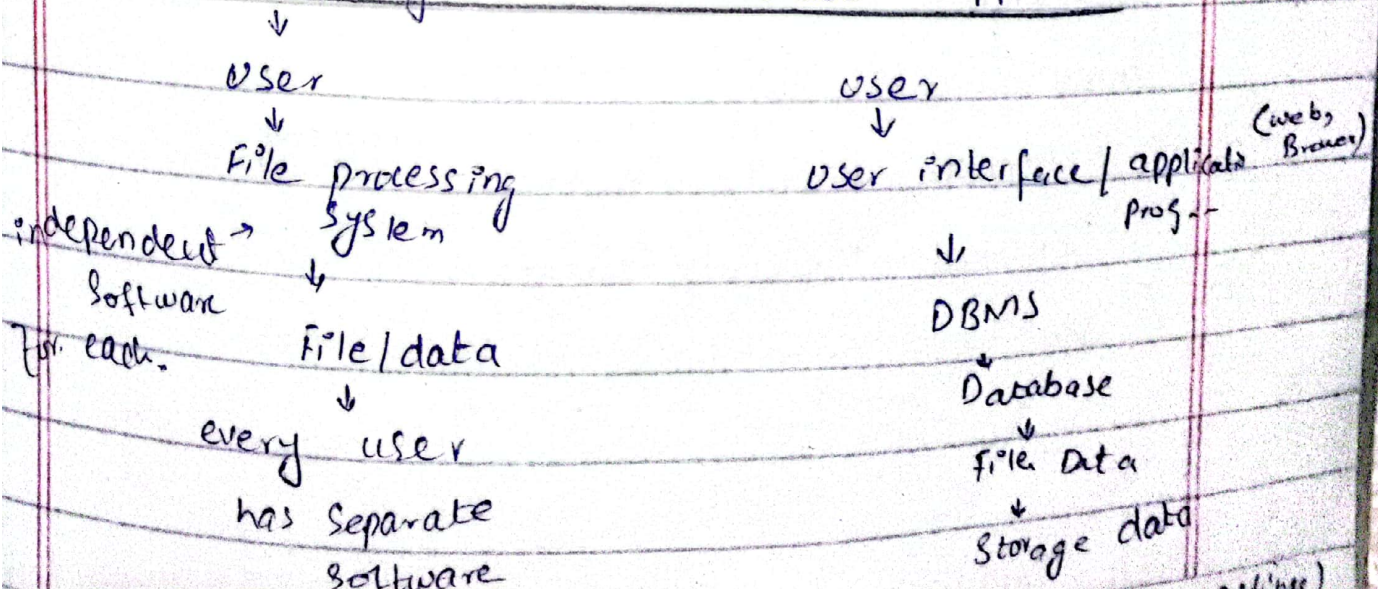 ↓
User
↓
File processing
System
independent →
Software
for each.
↓
File / data
↓
every user
has Separate
Software
User
↓
User interface / applicatn
prog..
(web,
Brower)
↓
DBMS
↓
Database
↓
File Data
↓
Storage data